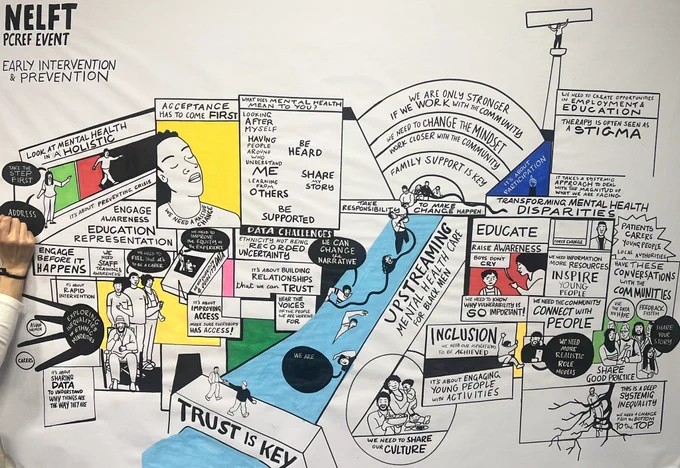 NELFT
PCREF EVENT
EARLY INTERVENTION
& PREVENTION
LOOK AT MENTAL HEALTH
IN A HOLISTIC
TAKE THE
STEP
FIRST
ADDRESS
IT'S ABOUT PREVENTING CRISIS
ENGAGE
AWARENESS
EDUCATION
REPRESENTATION
ACCEPTANCE
HAS TO COME FIRST
WHAT DOES MENTAL HEALTH
MEAN TO YOU?
LOOKING
AFTER
MYSELF
HAVING
PEOPLE
AROUND
WHO
UNDERSTAND
ME
LEARNING
FROM
OTHERS
BE
HEARD
SHARE
MY
STORY
BE
SUPPORTED
WE NEED A
ENGAGE
BEFORE IT
HAPPENS
WE NEED
STAFF
TRAINING &
AWARENESS
WE NEED TO
FEEL THAT
WE NEED TO
IMPROVE
THE EQUITY IN
THE EXPERIENCE
DATA CHALLENGES
ETHNICITY NOT BEING
RECORDED
UNCERTAINTY
IT'S ABOUT BUILDING
RELATIONSHIPS
that we can TRUST
HEAR THE
VOICES
OF THE PEOPLE
WE ARE WORKING
FOR
WE CAN
CHANGE THE
NARRATIVE
IT'S ABOUT
RAPID
INTERVENTION
EXPLORING
THE
QUALITIES
OF ETHNIC
MINORITIES
CARERS
IT'S ABOUT
SHARING
DATA
TO UNDERSTAND
WHY THINGS ARE
THE WAY THEY ARE
IT'S ABOUT
IMPROVING
ACCESS
MAKE SURE EVERYBODY
HAS ACCESS!
WE ARE
TRUST IS KEY
WE ARE ONLY STRONGER
IF WE WORK WITH THE COMMUNITY
WE NEED TO CHANGE THE MINDSET
WORK CLOSER WITH THE COMMUNITY
FAMILY SUPPORT IS KEY
TAKE
RESPONSIBILITY
TO MAKE
CHANGE HAPPEN
IT'S ABOUT
PARTICIPATION
UPSTREAMING
MENTAL HEALTH CARE
FOR BLACK MEN
WE NEED TO SHARE
OUR CULTURE
WE NEED TO CREATE OPPORTUNITIES
IN EMPLOYMENT &
EDUCATION
THERAPY IS OFTEN SEEN AS
A STIGMA
IT TAKES A SYSTEMIC
APPROACH TO DEAL
WITH THE MAGNITUD OF
WHAT WE ARE FACING
TRANSFORMING MENTAL HEALTH
DISPARITIES
EDUCATE
RAISE AWARENESS
BOYS DON'T
CRY
WE NEED TO KNOW
WHY VULNERABILITY IS
SO IMPORTANT!
WE NEED INFORMATION
MORE RESOURCES
INSPIRE
YOUNG
PEOPLE
PATIENTS
CARERS
YOUNG PEOPLE
LOCAL AUTHORITIES
HAVE THESE
CONVERSATIONS
WITH THE
COMMUNITIES
INCLUSION
TO BE ACHIEVED
IT'S ABOUT ENGAGING
YOUNG PEOPLE
WITH ACTIVITIES
WE NEED THE COMMUNITY
CONNECT WITH
PEOPLE
WE NEED
MORE
REALISTIC
ROLE
MODELS
FEEDBACK
SYSTEM
SHARE
YOUR
STORY!
SHARE
GOOD PRACTICE
THIS IS A DEEP
SYSTEMIC
INEQUALITY
WE NEED A CHANGE
FROM THE BOTTOM
TO THE TOP